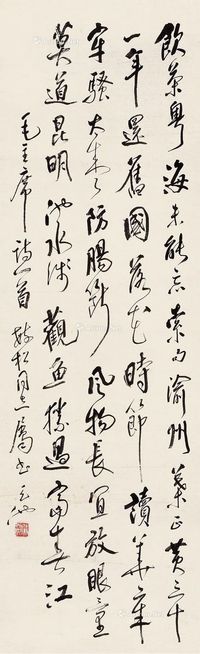 飲茶粵海未能忘索句渝州葉正黃三十
一年還舊國落花時節讀華章
牢騷太盛防腸斷風物長宜放眼量
莫道昆明池水淺觀魚勝過富春江
毛主席詩一首 松同志屬書